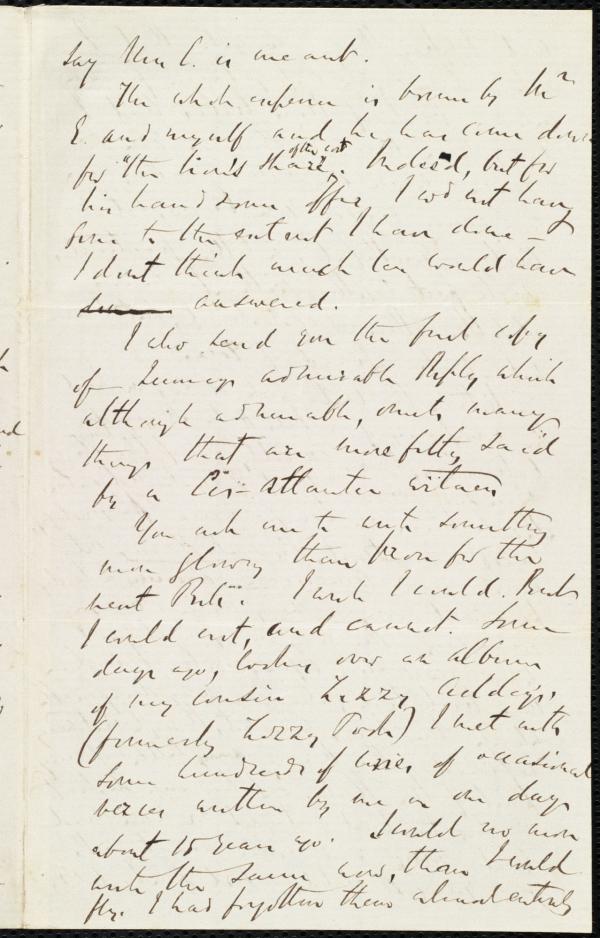 say Mrs C. is meant.
The whole expense is borne by Mr
E. and myself and he has come down
for "the lion's share" of the cost. Indeed, but for
his handsome offer, I wd not have
gone to the extent I have done –
I dont think much less would have
answered.
I also send you the first copy
of admirable Reply, which
although admirable, omits many
things that are more fitly said
by a Cis-Atlantic witness
You ask me to write something
more glowing than prose for the
next Bell. I wish I could. But
I could not, and cannot. Some
days ago, looking over an album
of my cousin Lizzy
(formerly Lizzy) I met with
some hundreds of lines of occasional
verses written by me in one day
about 15 years ago. I could no more
write the same now, than I could
fly. I had forgotten them almost entirely